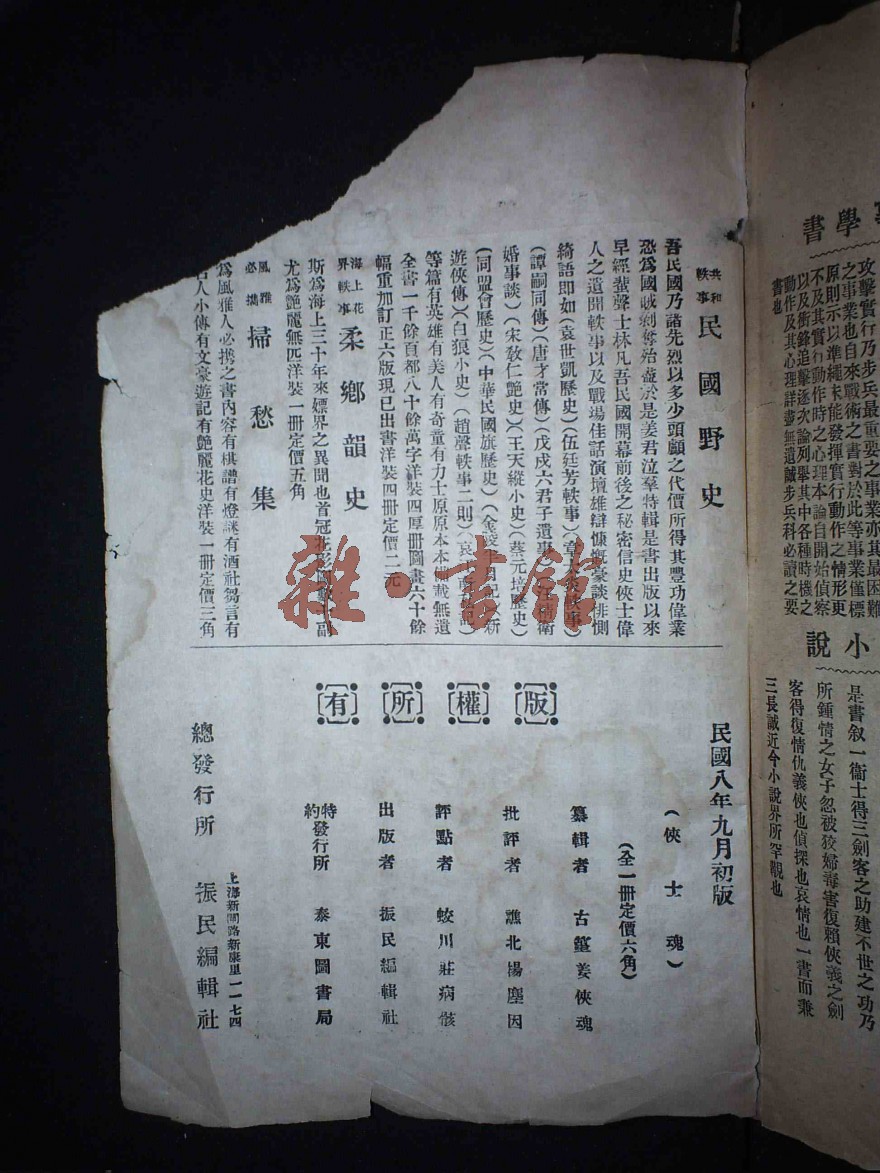 書
學
攻擊實行乃步兵最重要之事業亦其最困難
之事業也自來戰術之書對於此等事業僅標
原則示以準繩未能發揮實行動作之情形更
不及其實行動作時之心理本論自開始偵察
以及衝鋒追擊逐次論列舉其中各種時機之
動作及其心理詳盡無遺誠步兵科必讀之要
書也
小說
是書叙一衞士得三劍客之助建不世之功乃
所鍾情之女子忽被狡婦毒害復賴俠義之劍
客得復情仇義俠也偵探也哀情也一書而兼
三長誠近今小說界所罕覯也
共和軼事 民國野史
吾民國乃諸先烈以多少頭顱之代價所得其豐功偉業
恐爲國賊剥奪殆盡於是姜君泣羣特輯是書出版以來
早經蜚聲士林凡吾民國開幕前後之秘密信史俠士偉
人之遺聞軼事以及戰場佳話演壇雄辯慷慨豪談排惻
綺語即如(袁世凱歷史)(伍廷芳軼事)(章
(譚嗣同傳)(唐才常傳)(戊戌六君子遺事 衛
婚事談)(宋敎仁艶史)(王天縱小史)(蔡元培歷史)
(同盟會歷史)(中華民國旗歷史)(金陵 新
遊俠傳)(白狼小史)(趙聲軼事二則)(哀
等篇有英雄有美人有奇童有力士原原本本 載無遺
全書一千餘頁都八十餘萬字洋裝四厚冊圖畫六十餘
幅重加訂正六版現已出書洋裝四冊定價二元
海上花界軼事 柔鄉韻史
斯爲海上三十年來嫖界之異聞也首冠花影 副
尤爲艶麗無匹洋裝一冊定價五角
風雅必攜 掃愁集
爲風雅人必携之書內容有棋譜有燈謎有酒社芻言有
名人小傳有文豪遊記有艶麗花史洋裝一冊定價三角
雜·書館
版權所有
民國八年九月初版
(俠士魂)
(全一冊定價六角)
纂輯者 古堇姜俠魂
批評者 譙北揚塵因
評點者 蛟川莊病骸
出版者 振民編輯社
特約發行所 泰東圖書局
上海新閘路新康里一一七四
總發行所 振民編輯社